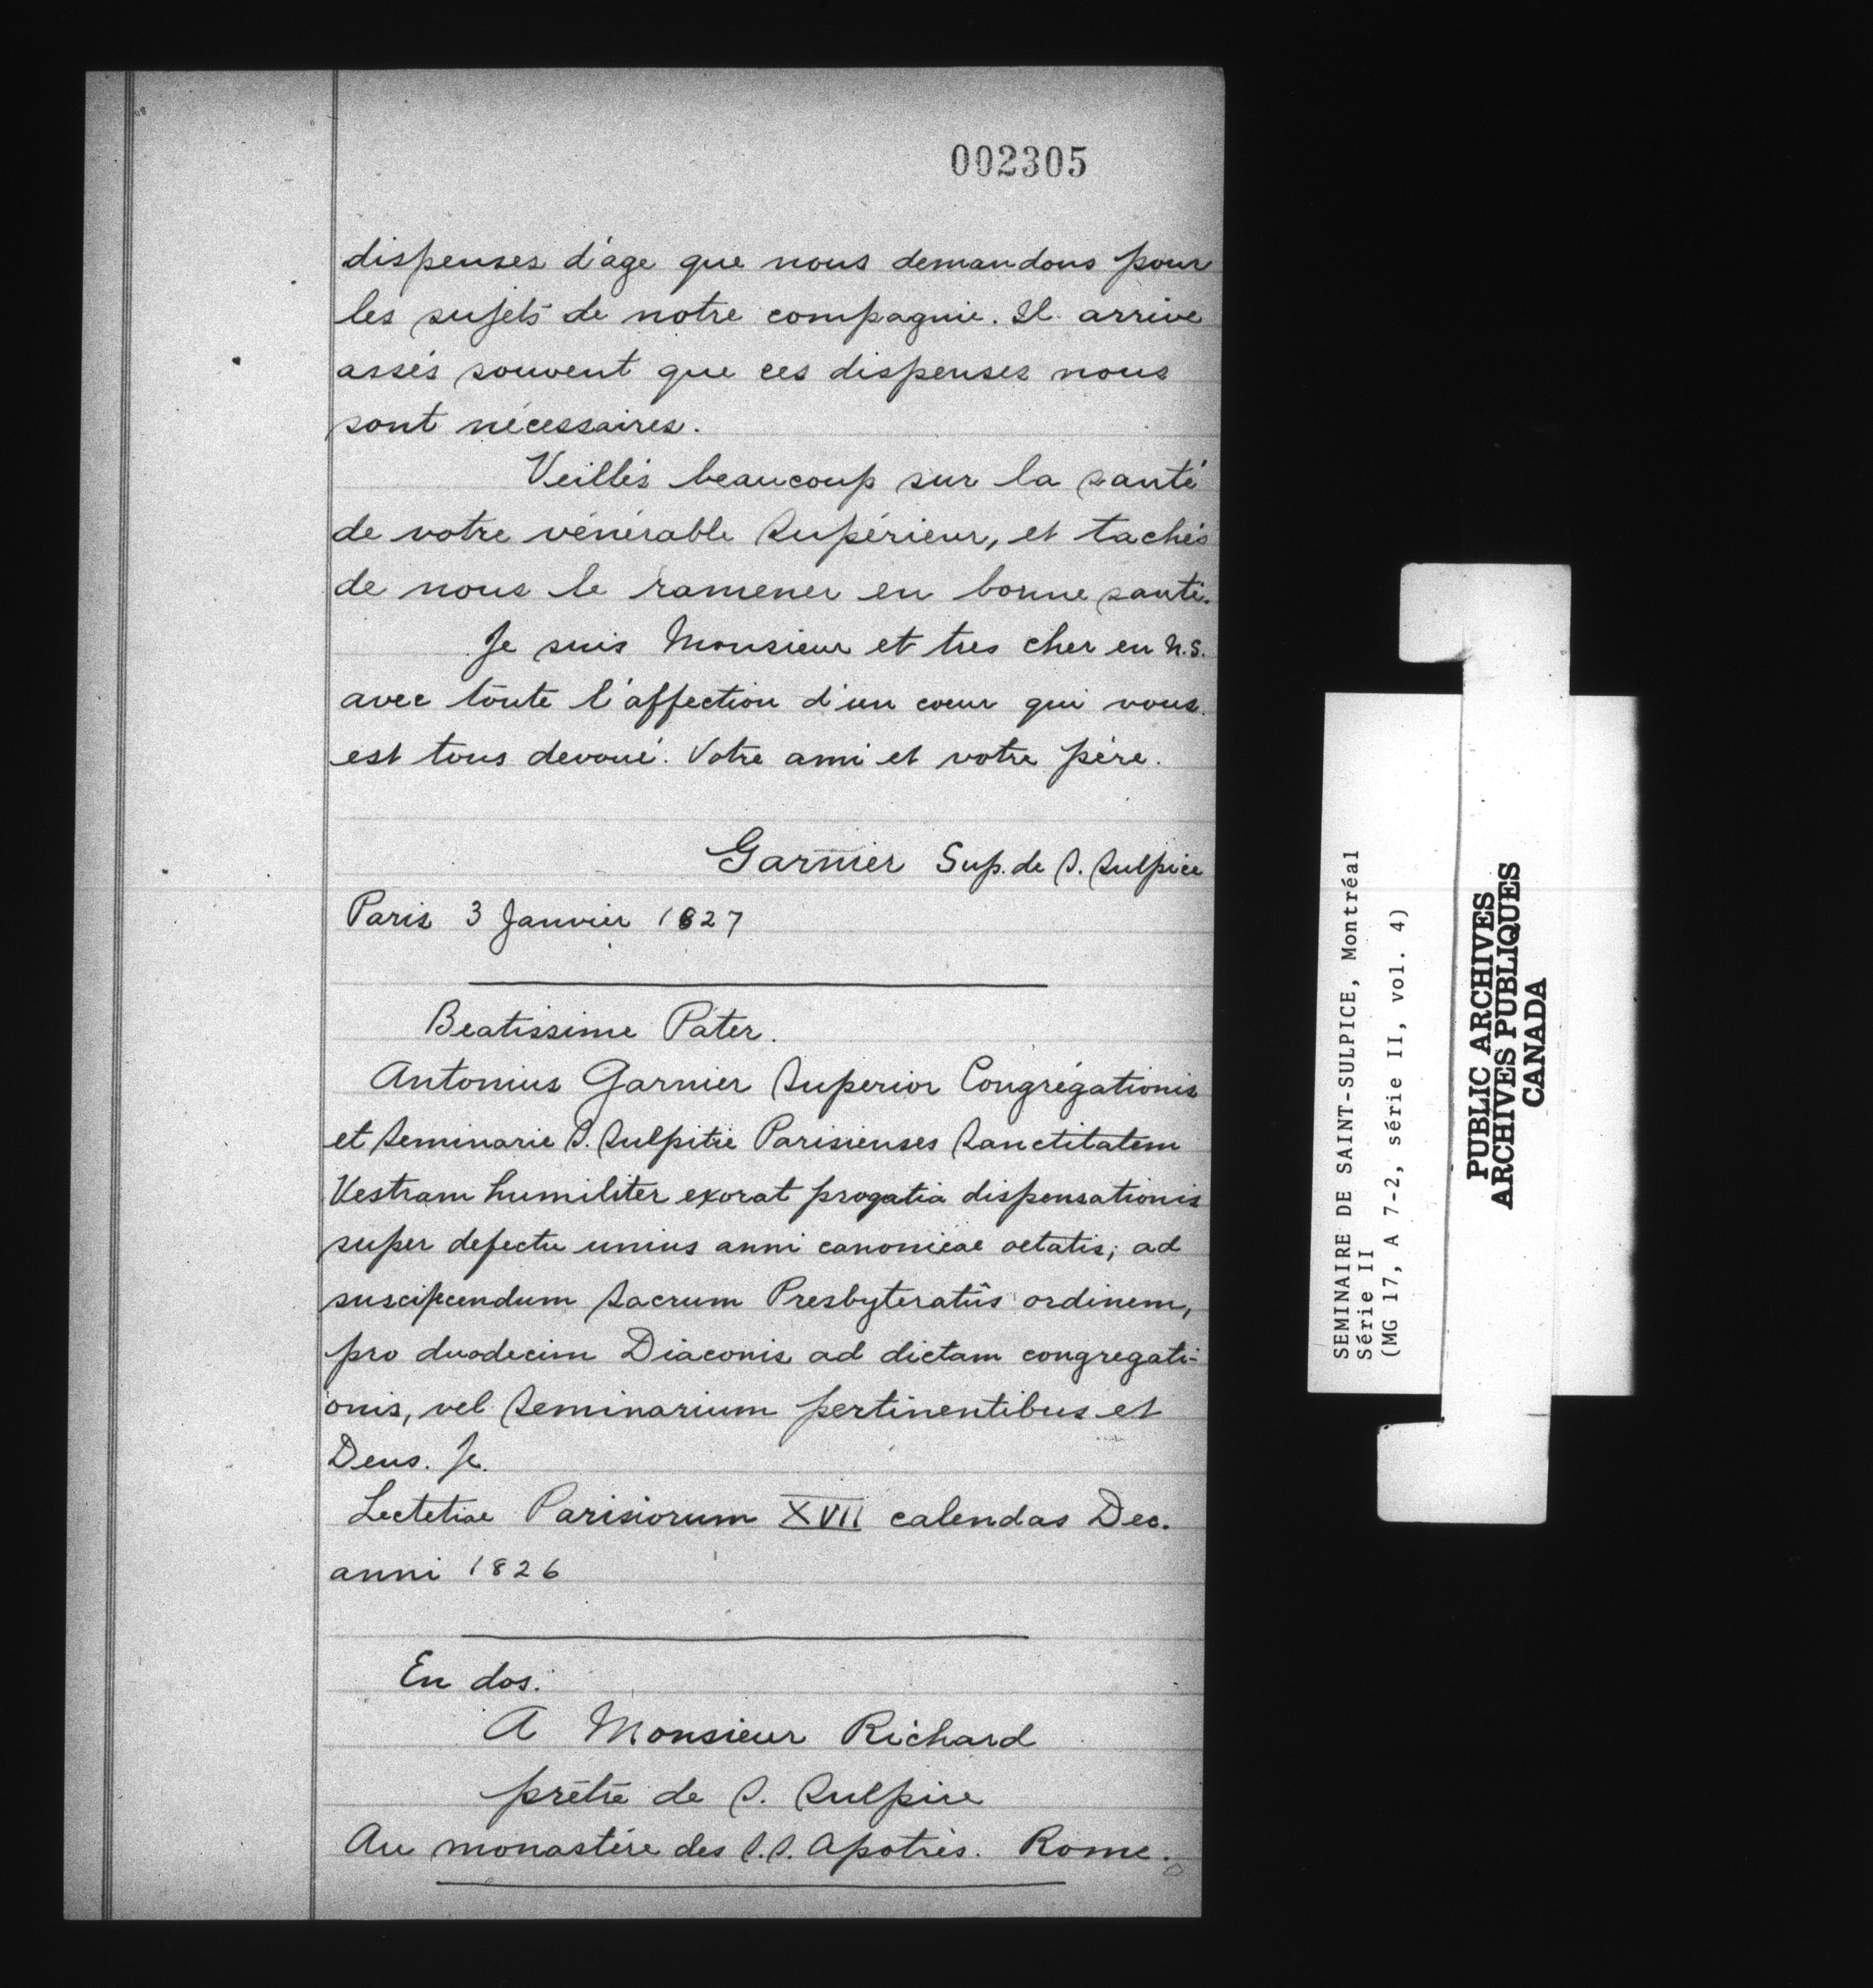 002305
dispenses d'age que nous demandons pour
les sujets de notre compagnie. Il arrive
assés souvent que ces dispenses nous
sont nécessaires.
Veillés beaucoup sur la santé
de votre vénérable Supérieur, et tachés
de nous le ramener en bonne santé.
Je suis Monsieur et tres cher en N.S.
avec toute l'affection d'un coeur qui vous
est tous devoué. Votre ami et votre père.
Garnier Sup. de S. Sulpice
Paris 3 Janvier 1827
Beatissime Pater.
Antonius Garnier Superior Congrégationis
et Seminarie S. Sulpitie Parisienses Sanctitatem
Vestram humiliter exorat progatia dispensationis
super defectu unius anni canonicae aetatis; ad
suscipcendum Sacrum Presbyteratûs ordinem,
pro duodecim Diaconis ad dictam congregati-
onis, vel Seminarium pertinentibus et
Deus.
Lectetiae Parisiorum XVII calendas Dec.
anni 1826
En dos:
A Monsieur Richard
prêtre de S. Sulpice
Au monastère des S.S. Apotrès. Rome.
SEMINAIRE DE SAINT-SULPICE, Montréal
Série II
(MG 17, A 7-2, série II, vol. 4)
PUBLIC ARCHIVES
ARCHIVES PUBLIQUES
CANADA